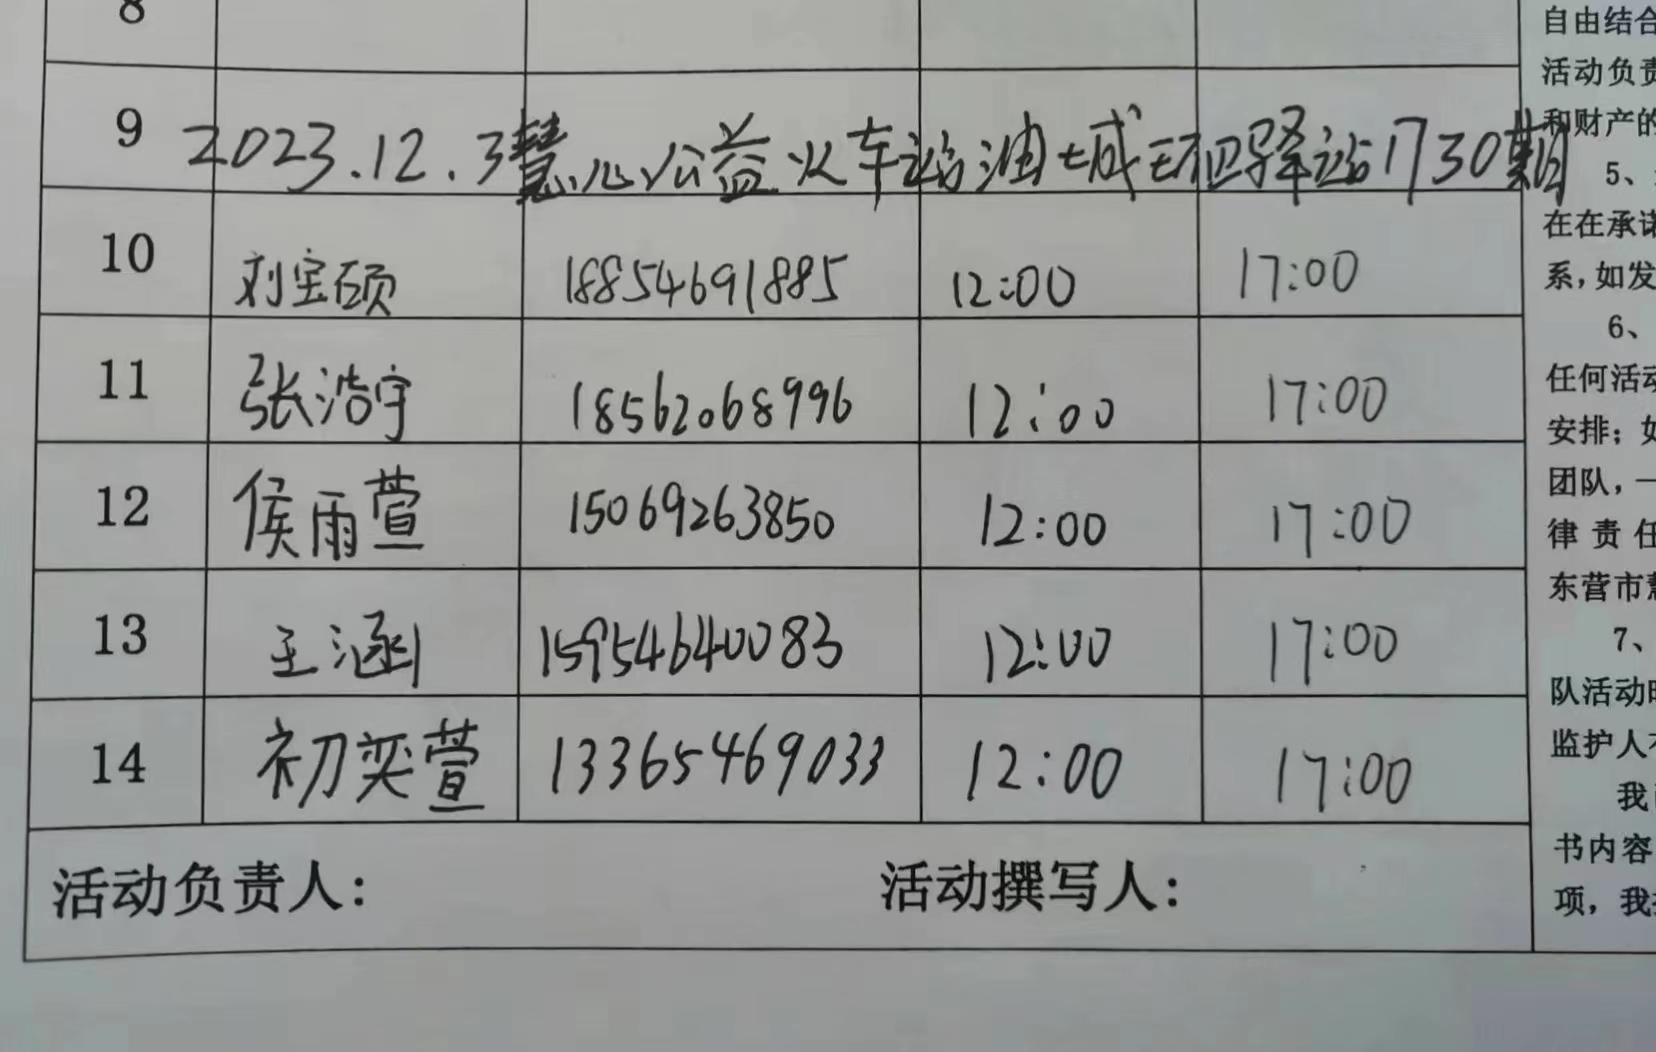 8
9 2023.12.3慧心公益火车站油城环卫驿站1730期
10 刘宝硕 18854691885 12:00 17:00
11 张浩宇 18562068996 12:00 17:00
12 侯雨萱 15069263850 12:00 17:00
13 王涵 15954640083 12:00 17:00
14 初奕萱 13365469033 12:00 17:00
活动负责人： 活动撰写人：
自由结合
活动负责
和财产的
5、
在在承诺
系,如发
6、
任何活动
安排；如
团队，一
律责任
东营市慧
7、
队活动时
监护人不
我已
书内容
项，我